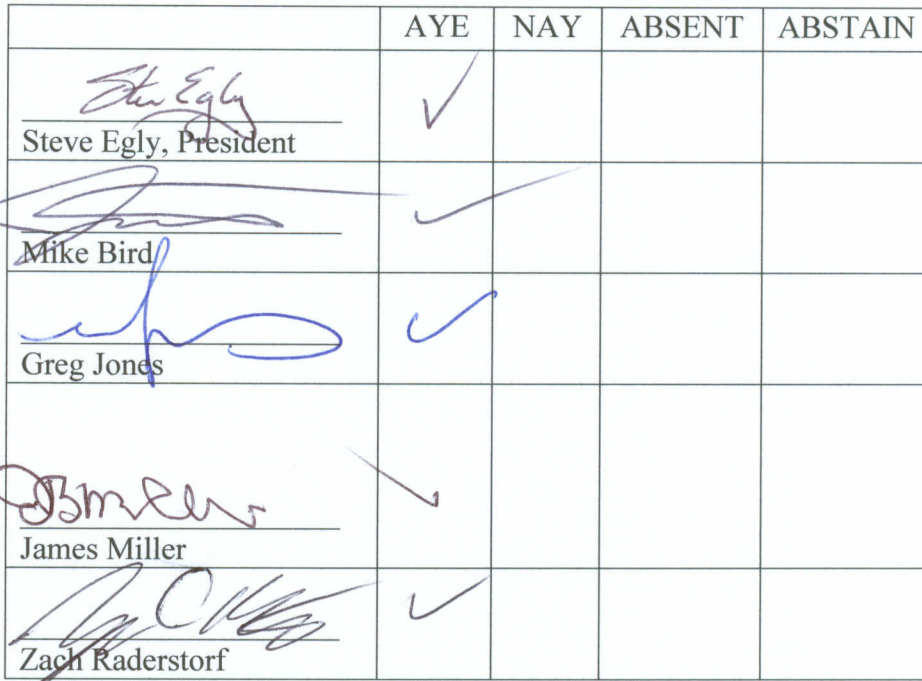 AYE NAY ABSENT ABSTAIN
Steve Egly
Steve Egly, President
✓
Mike Bird
✓
Greg Jones
✓
JBMiller
James Miller
✓
Zach Raderstorf
✓